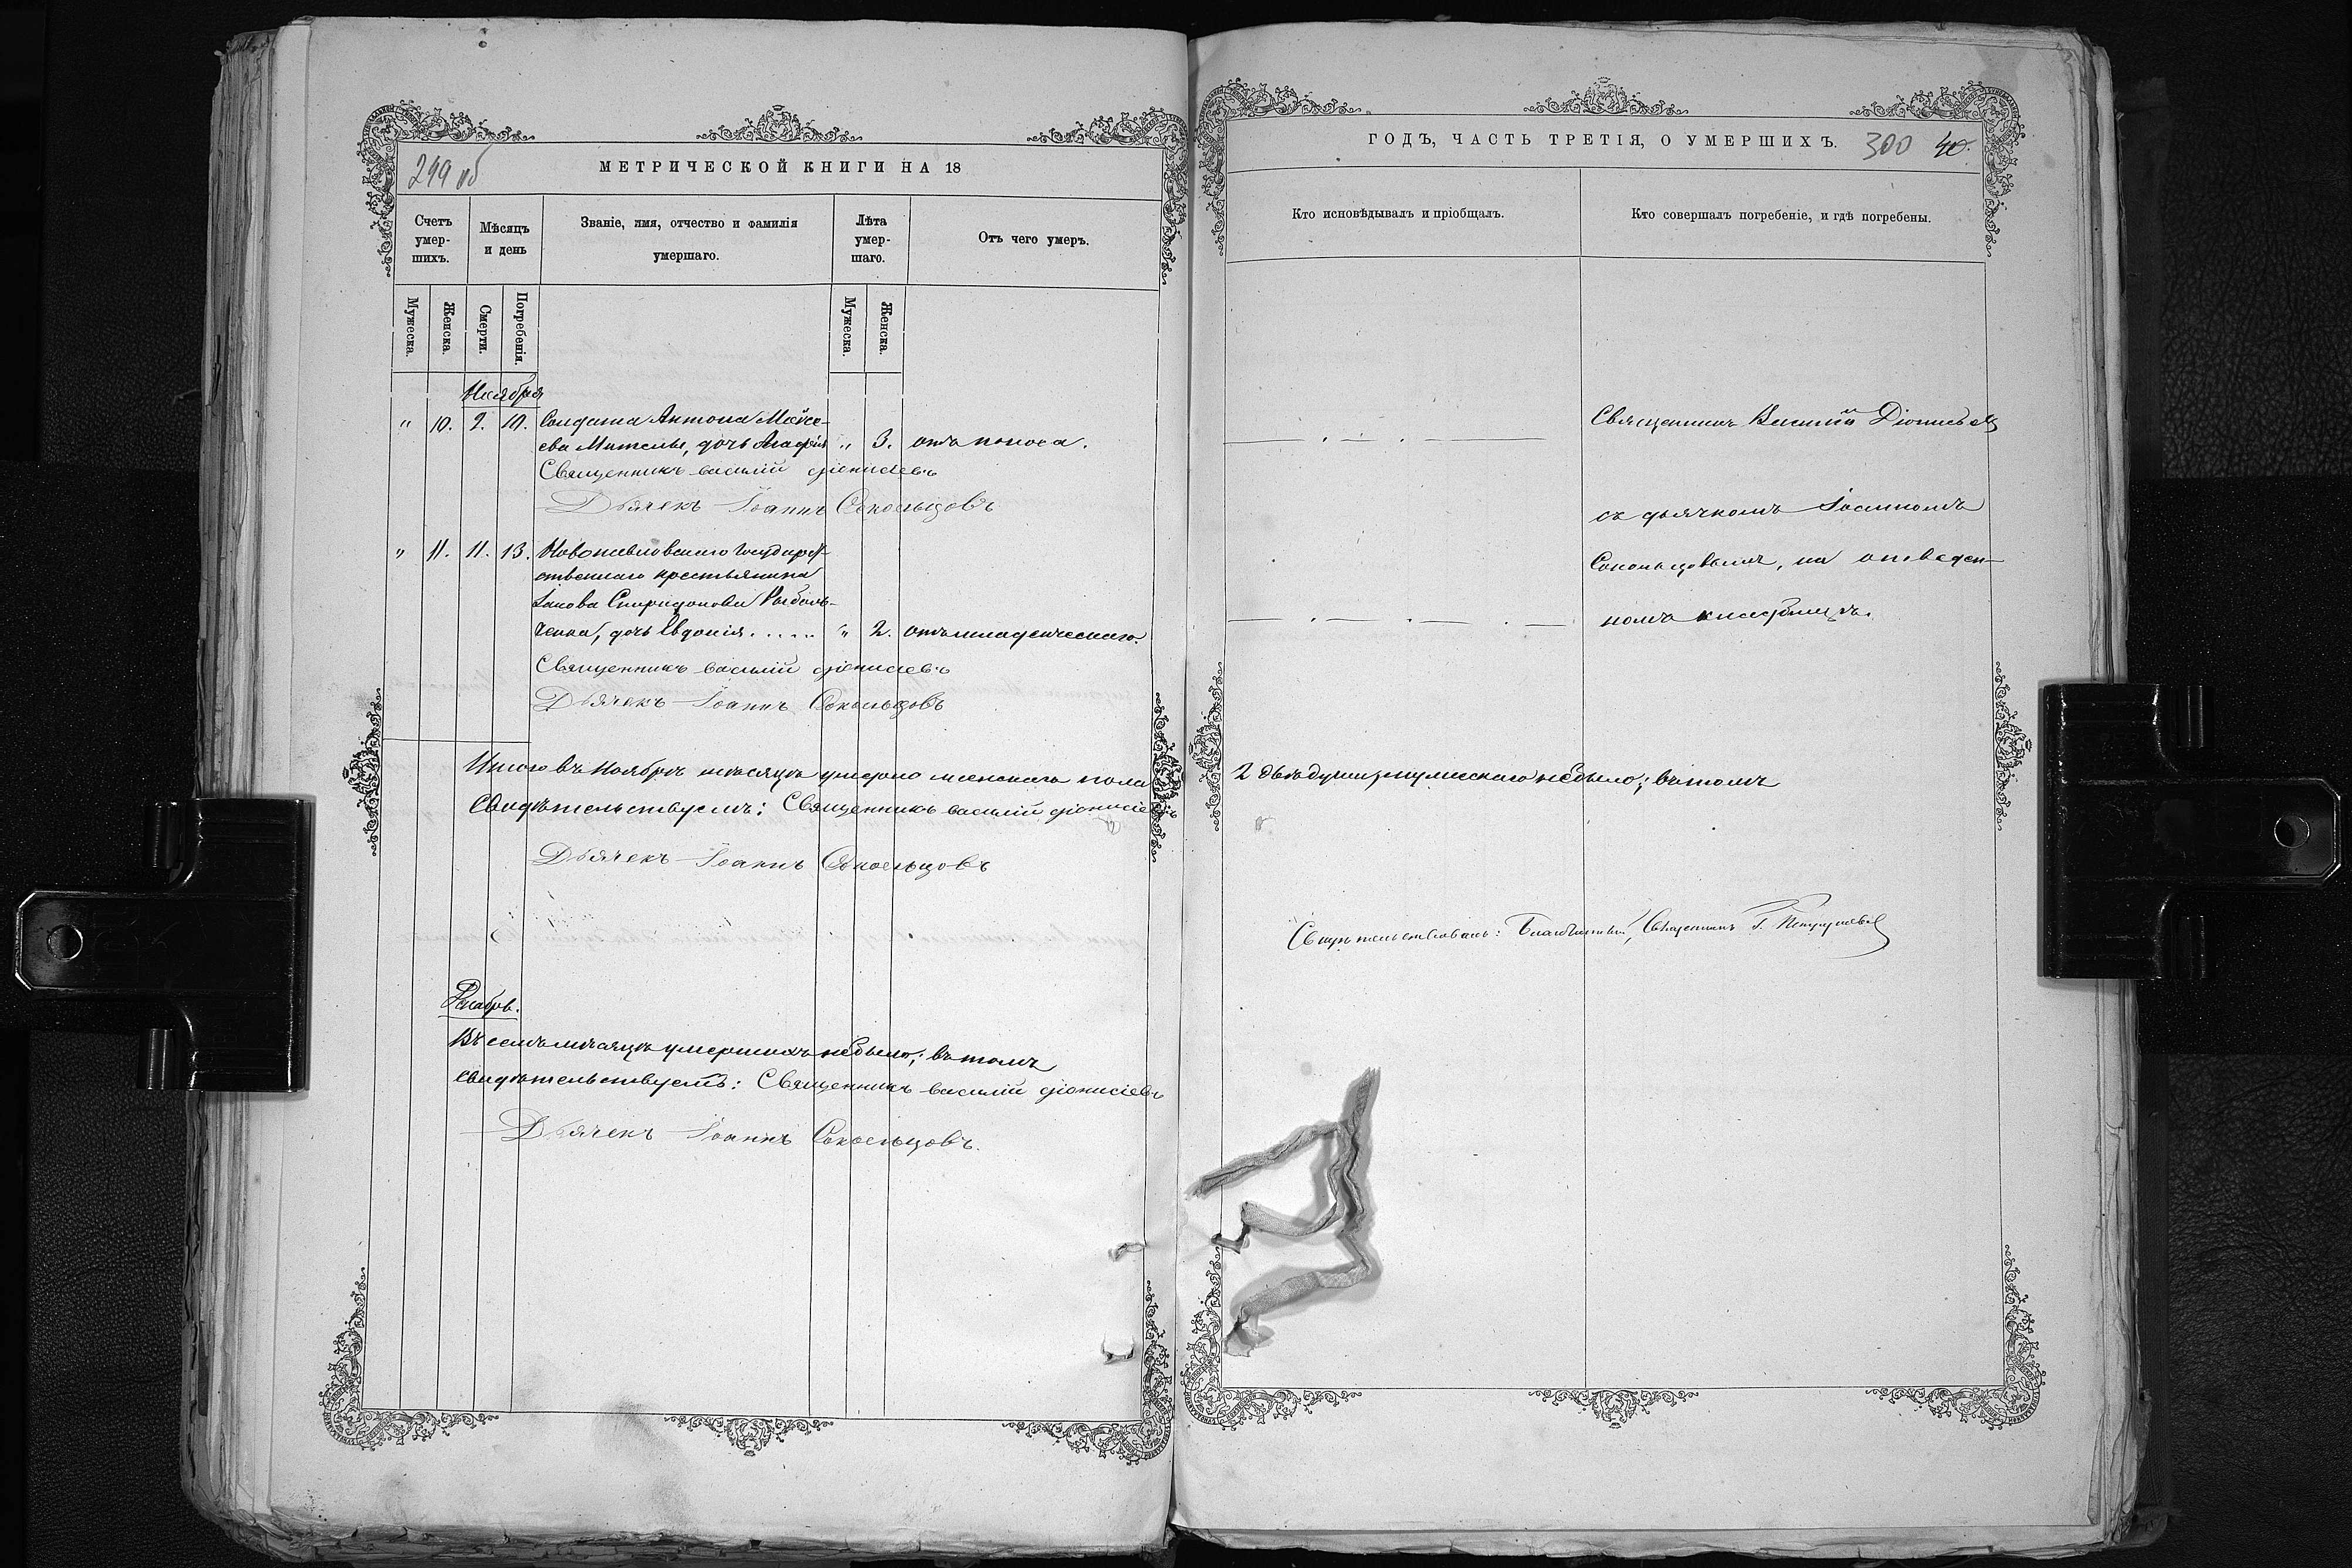 299 об
МЕТРИЧЕСКОЙ КНИГИ НА 18
Счетъ умер-шихъ.
Мѣсяцъ и день
Званіе, имя, отчество и фамилія умершаго.
Лѣта умер-шаго.
Отъ чего умеръ.
Мужеска.
Женска.
Смерти.
Погребенія.
Мужеска.
Женска.
Ноября
" 10. 2. 10. Солдата Антона Мойсе-
ева дочь Агафія " 3. отъ поноса.
Священникъ василій діонисіевъ
Дьячекъ Іоаннъ Сокольцовъ
" 11. 11. 13. государ-
ственнаго крестьянина
Іакова Спиридонова Рыбаль-
ченка, дочь Евдокія..... " 2. отъ младенческаго.
Священникъ василій діонисіевъ
Дьячекъ Іоаннъ Сокольцовъ
Итого въ Ноябрѣ мѣсяцѣ умерло женскаго пола
Свидѣтельствуемъ: Священникъ василій діонисіевъ
Дьячекъ Іоаннъ Сокольцовъ
Декабрь.
Въ семъ мѣсяцѣ умершихъ небыло; въ томъ
свидѣтельствуемъ: Священникъ василій діонисіевъ
Дьячекъ Іоаннъ Сокольцовъ.
ГОДЪ, ЧАСТЬ ТРЕТІЯ, О УМЕРШИХЪ. 300 40.
Кто исповѣдывалъ и пріобщалъ.
Кто совершалъ погребеніе, и гдѣ погребены.
Священникъ Василій Діонисьевъ
съ дьячкомъ Іоанномъ
Сокольцовымъ, на отведен-
номъ кладбищѣ.
2 двѣ души, мужескаго небыло; въ томъ
Свидѣтельствовалъ: Благочинный, Священникъ Г.